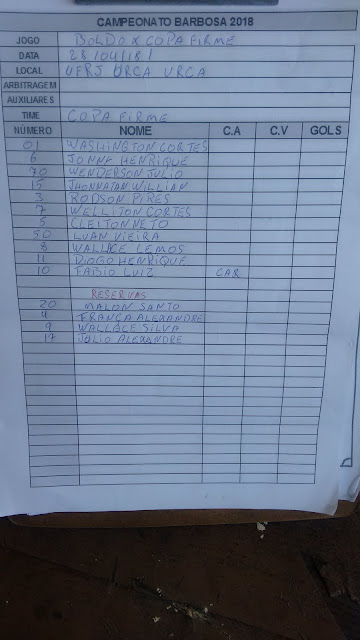 CAMPEONATO BARBOSA 2018
JOGO BOLDO X COPA FIRME
DATA 28/04/18
LOCAL UFRJ URCA URCA
ARBITRAGEM
AUXILIARES
TIME COPA FIRME
NÚMERO NOME C.A C.V GOLS
01 WASHINGTON CORTES
6 JONNY HENRIQUE
70 WENDERSON JULIO
15 JHONNATAN WILLIAN
3 RODSON PIRES
7 WELLITON CORTES
5 CLEITON NETO
50 LUAN VIEIRA
8 WALLACE LEMOS
11 DIOGO HENRIQUE
10 FABIO LUIZ CAR
RESERVAS
20 MALON SANTO
4 FRANÇA ALEXANDRE
9 WALLACE SILVA
17 JULIO ALEXANDRE